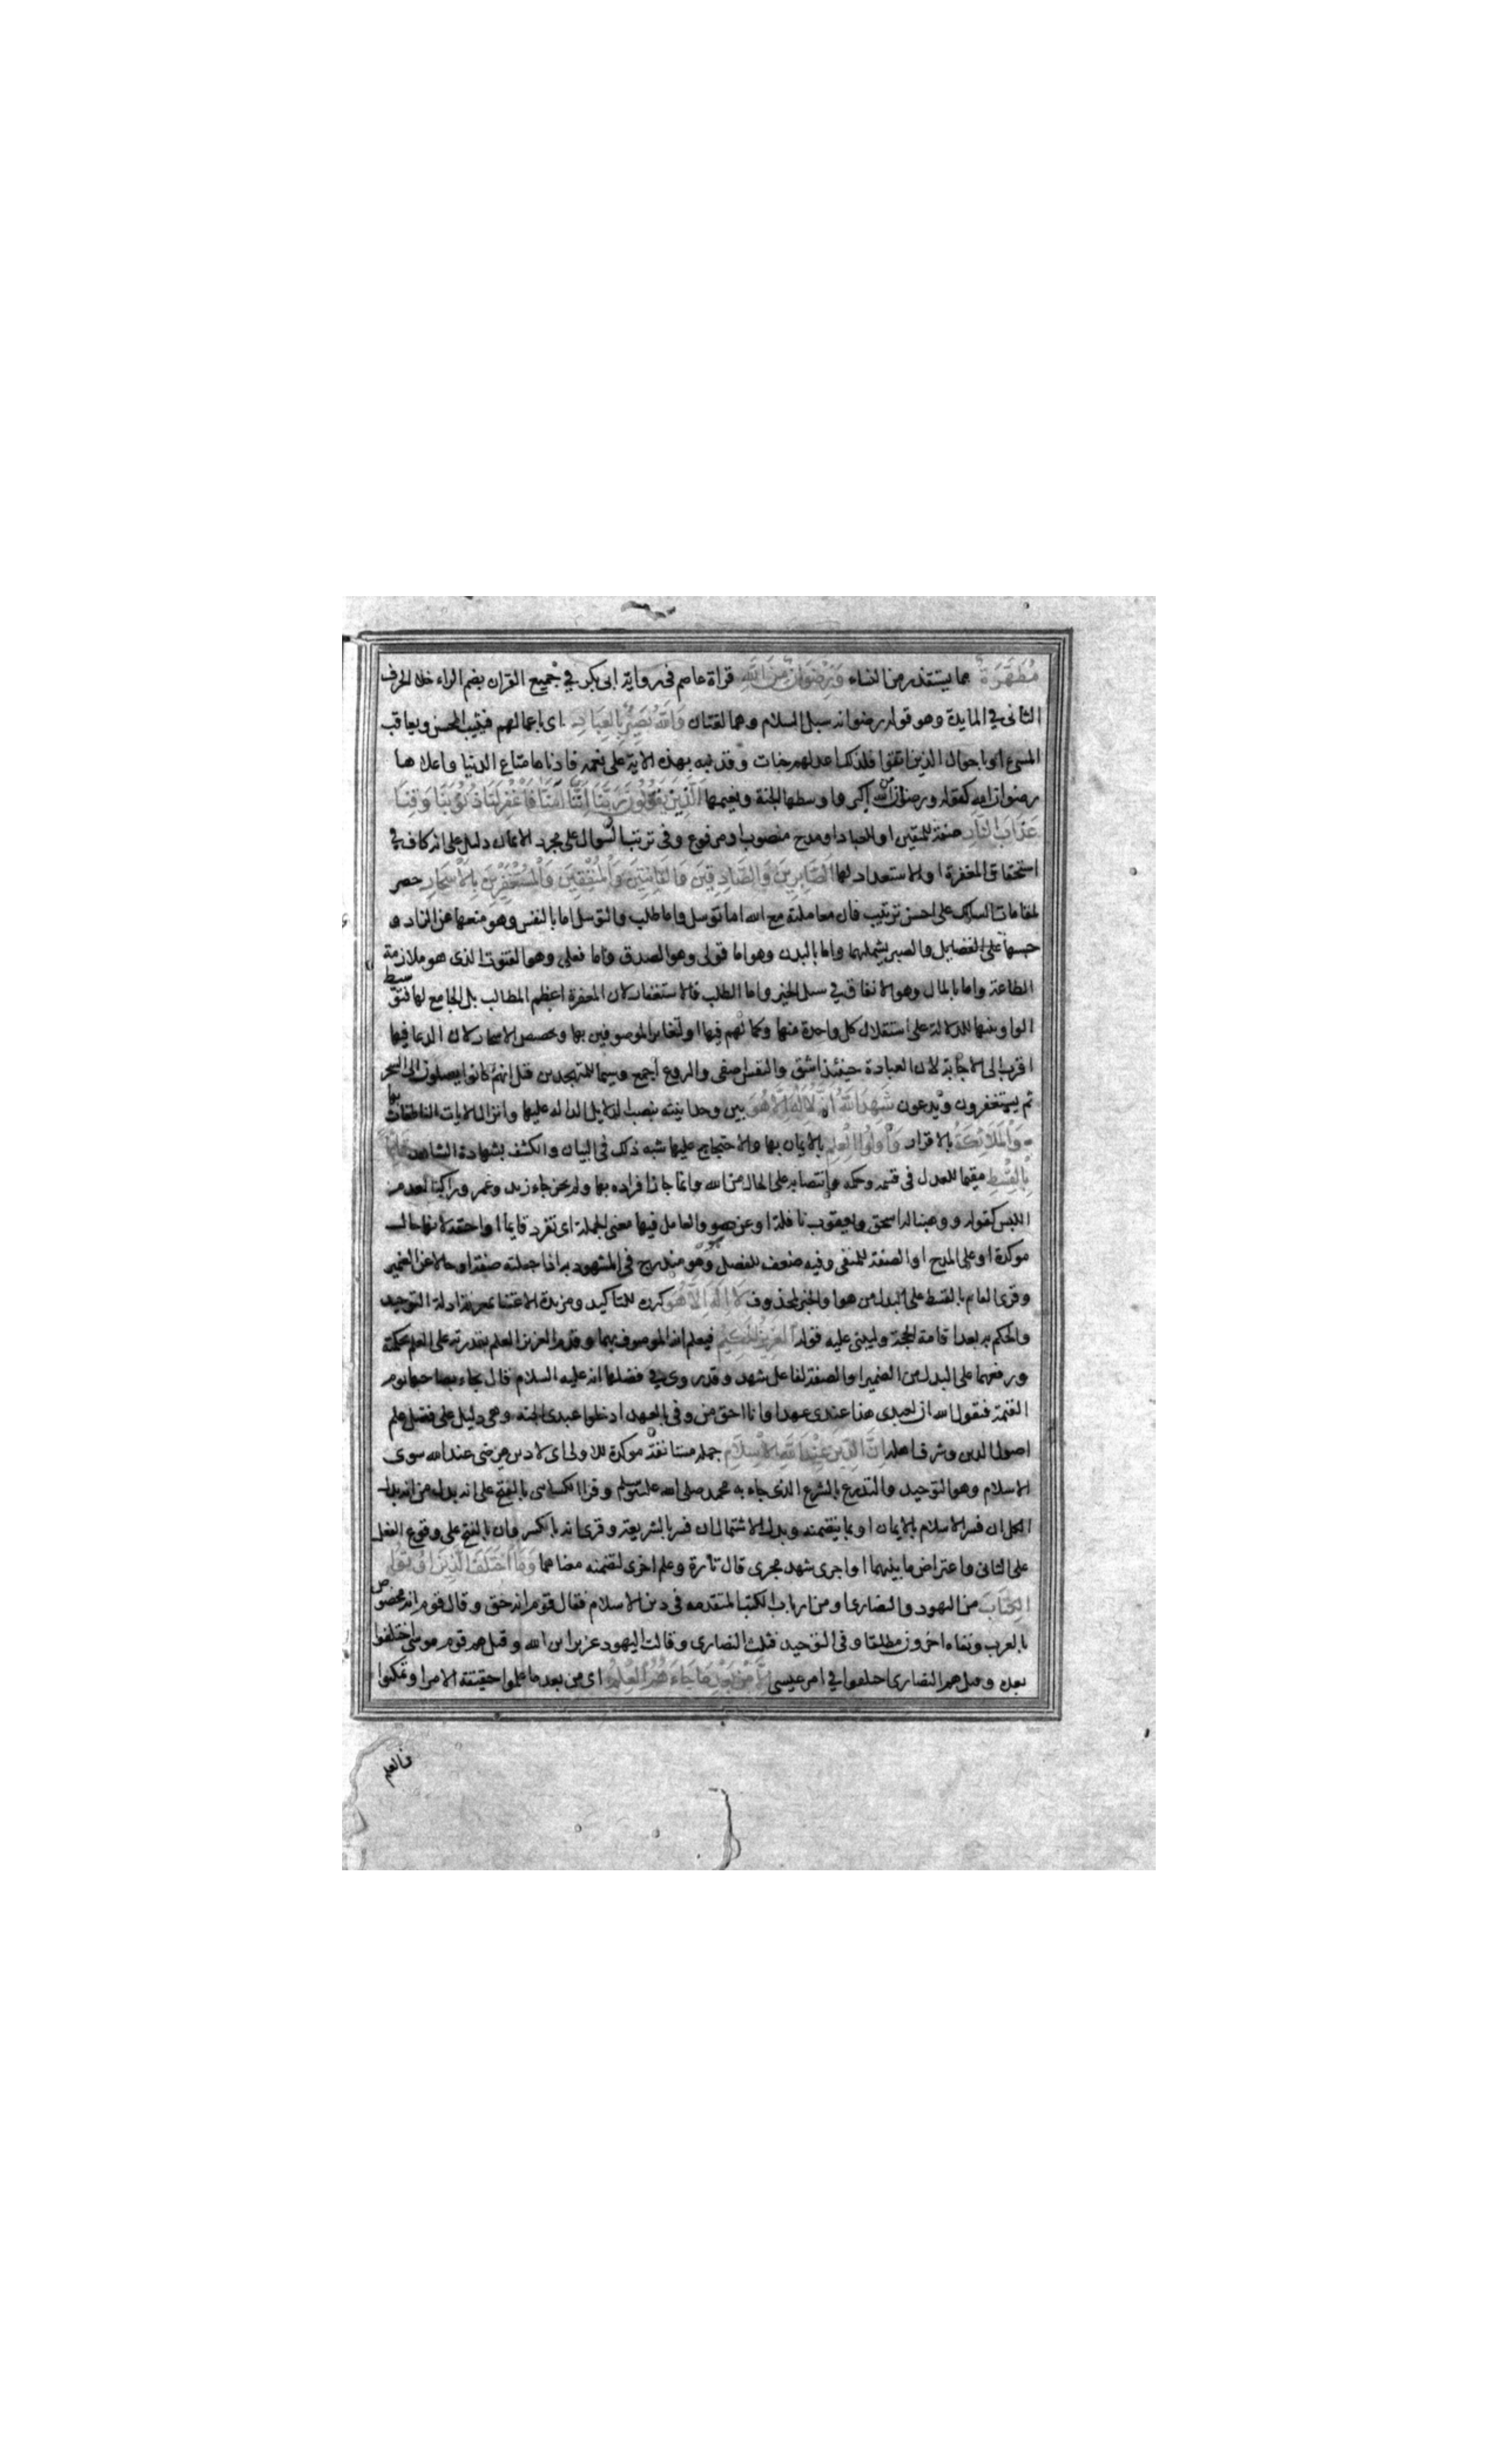 مُطَهَّرَةٌ مما يستقذر من النساء وَرِضْوَانٌ مِنَ اللَّهِ قراة عاصم فى رواية ابى بكر فى جميع القران بضم الراء خلا الحرف
الثانى فى المايدة وهو قوله رضوانه سبل السلام وهما لغتان وَاللَّهُ بَصِيرٌ بِالْعِبَادِ اى باعمالهم فيثيب المحسن ويعاقب
المسئ او باحوال الذين اتقوا فلذلك اعد لهم جنات وقد نبه بهذه الاية على نعمه فادناها متاع الدنيا واعلاها
رضوان الله كقوله ورضوان من الله اكبر واوسطها الجنة ونعيمها الَّذِينَ يَقُولُونَ رَبَّنَا إِنَّنَا آمَنَّا فَاغْفِرْ لَنَا ذُنُوبَنَا وَقِنَا
عَذَابَ النَّارِ صفة للمتقين او للعباد او مدح منصوب او مرفوع وفى ترتيب السوال على مجرد الايمان دليل على انه كاف فى
استحقاق المغفرة او الاستعداد لها الصَّابِرِينَ وَالصَّادِقِينَ وَالْقَانِتِينَ وَالْمُنْفِقِينَ وَالْمُسْتَغْفِرِينَ بِالْأَسْحَارِ حصر
لمقامات السالك على احسن ترتيب فان معاملته مع الله اما توسل واما طلب والتوسل اما بالنفس وهو منعها عن الرذايل و
حبسها على الفضايل والصبر يشملهما واما بالبدن وهو اما قولى وهو الصدق واما فعلى وهو القنوت الذى هو ملازمة
الطاعة واما بالمال وهو الانفاق فى سبل الخير واما الطلب فالاستغفار لان المغفرة اعظم المطالب بل الجامع لها وتوسيط
الواو بينها للدلالة على استقلال كل واحدة منها وكمالهم فيها او لتغاير الموصوفين بها وتخصيص الاسحار لان الدعا فيها
اقرب الى الاجابة لان العبادة حينئذ اشق والنفس اصفى والروع اجمع وسيما للمتهجدين قيل انهم كانوا يصلون الى السحر
ثم يستغفرون ويدعون شَهِدَ اللَّهُ أَنَّهُ لَا إِلَهَ إِلَّا هُوَ بين وحدانيته بنصب الدلايل الداله عليها وانزال الايات الناطقات بها
وَالْمَلَائِكَةُ بالاقرار وَأُولُوا الْعِلْمِ بالايمان بها والاحتجاج عليها شبه ذلك فى البيان والكشف بشهادة الشاهد قَائِمًا
بِالْقِسْطِ مقيما للعدل فى قسمه وحكمه وانتصابه على الحال من الله وانما جاز افراده بها ولم يجز جاء زيد وعمرو راكبا لعدم
اللبس كقوله ووهبنا له اسحق ويعقوب نافلة او عن هو والعامل فيها معنى الجملة اى تفرد قايما او احقه لانها حال
موكدة او على المدح او الصفة للمنفى وفيه ضعف للفصل وهو مندرج فى المشهود به اذا جعلته صفة او حالا عن الضمير
وقرى القايم بالقسط على البدل من هو او الخبر لمحذوف لَا إِلَهَ إِلَّا هُوَ كرره للتاكيد ومزيد الاعتنا بمعرفة ادلة التوحيد
والحكم به بعد اقامة الحجة وليبنى عليه قوله الْعَزِيزُ الْحَكِيمُ فيعلم انه الموصوف بهما وقدم العزيز لتقدم العلم بقدرته على العلم بحكمته
ورفعهما على البدل من الضمير او الصفة لفاعل شهد وقد روى فى فضلها انه عليه السلام قال يجاء بصاحبها يوم
القيمة فيقول الله ان لعبدى هذا عندى عهدا وانا احق من وفى بالعهد ادخلوا عبدى الجنة وهى دليل على فضل علم
اصول الدين وشرف اهله إِنَّ الدِّينَ عِنْدَ اللَّهِ الْإِسْلَامُ جملة مستانفة موكدة للاولى اى لا دين مرضى عند الله سوى
الاسلام وهو التوحيد والتدرع بالشرع الذى جاء به محمد صلى الله عليه وسلم وقرا الكساى بالفتح على انه بدل من انه بدل
الكل ان فسر الاسلام بالايمان او بما يتضمنه وبدل الاشتمال ان فسر بالشريعة وقرى انه بالكسر وان بالفتح على وقوع الفعل
على الثانى واعتراض ما بينهما او اجرى شهد مجرى قال تارة وعلم اخرى لتضمنه معناهما وَمَا اخْتَلَفَ الَّذِينَ أُوتُوا
الْكِتَابَ من اليهود والنصارى او من ارباب الكتب المتقدمه فى دين الاسلام فقال قوم انه حق وقال قوم انه مخصوص
بالعرب ونفاه اخرون مطلقا وفى التوحيد فثلث النصارى وقالت اليهود عزير ابن الله وقيل هم قوم موسى اختلفوا
بعده وقيل هم النصارى اختلفوا فى امر عيسى إِلَّا مِنْ بَعْدِ مَا جَاءَهُمُ الْعِلْمُ اى من بعد ما علموا حقيقة الامر او تمكنوا